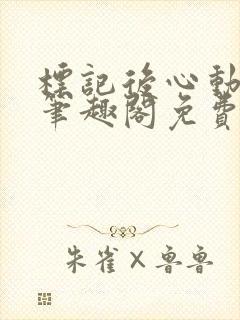 標記後心動
筆趣閣免費
朱雀×魯魯